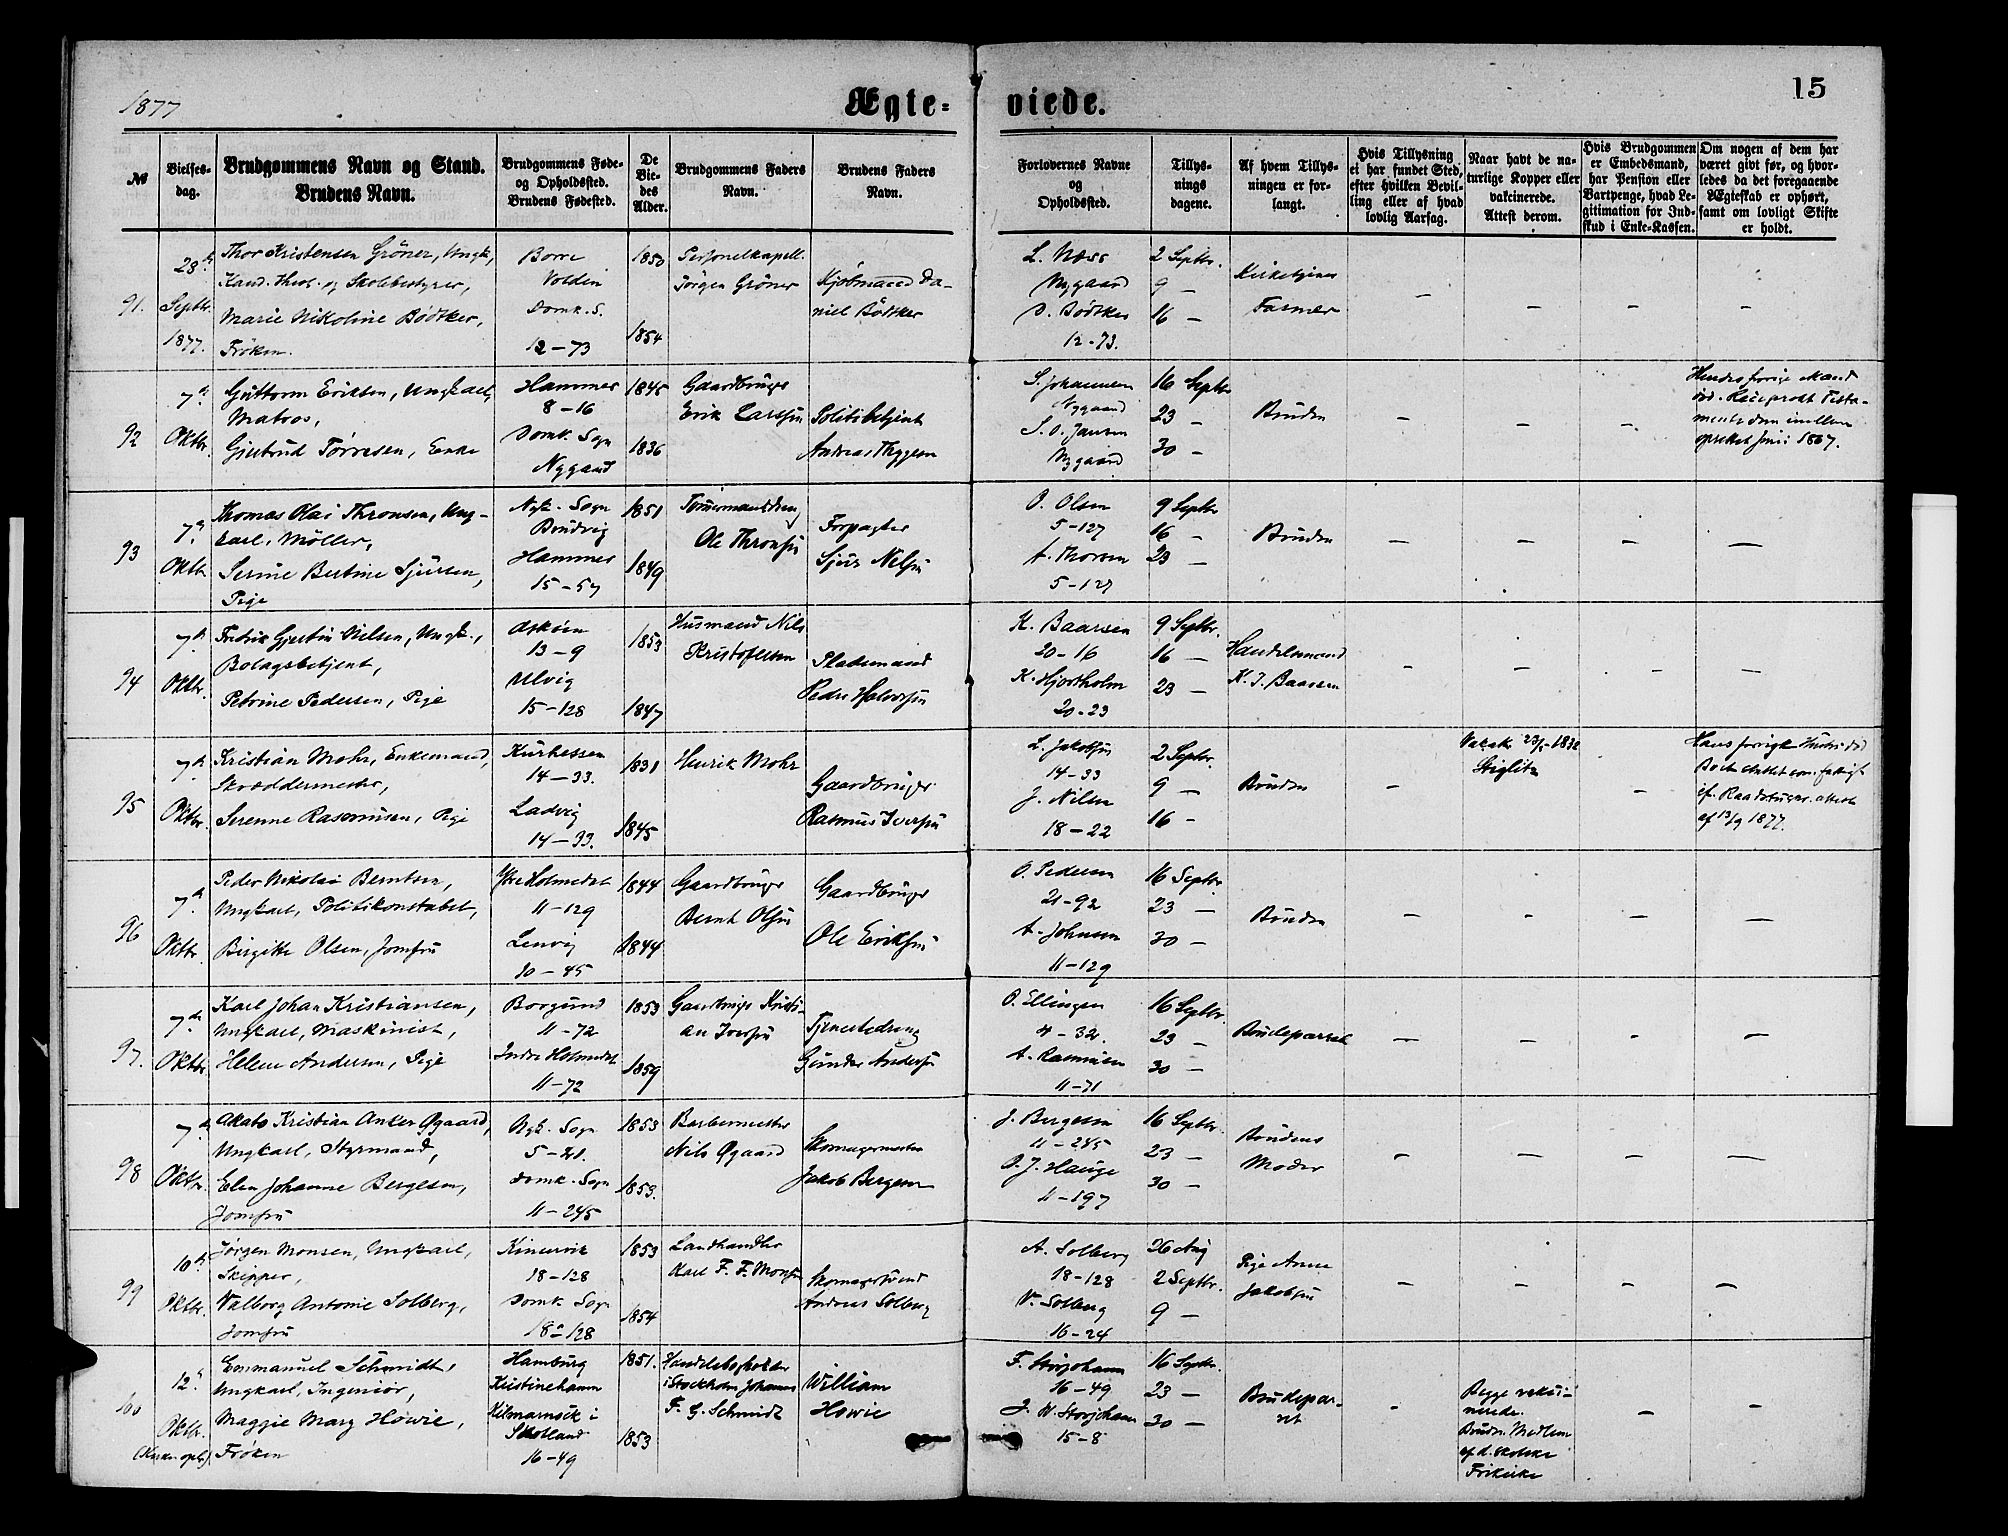 1877
Ægte-
viede.
15
№
Vielses-
dag.
Brudgommens Navn og Stand.
Brudens Navn.
Brudgommens Føde-
og Opholdssted.
Brudens Fødested.
De
Vie-
des
Alder.
Brudgommens Faders
Navn.
Brudens Faders
Navn.
Forlovernes Navne
og
Opholdssted.
Tillys-
nings
dagene.
Af hvem Tillys-
ningen er for-
langt.
Hvis Tillysning
ei har fundet Sted,
efter hvilken Bevil-
ling eller af hvad
lovlig Aarsag.
Naar havt de na-
turlige Kopper eller
vakcinerede.
Attest derom.
Hvis Brudgommen
er Embedsmand,
har Pension eller
Vartpenge, hvad Le-
gitimation for Ind-
skud i Enke-Kassen.
Om nogen af dem har
været givt før, og hvor-
ledes da det foregaaende
Ægteskab er ophørt,
samt om lovligt Skifte
er holdt.
91.
28de
Septbr.
1877.
Thor Kristensen Gröner, Ungk.,
Kand. theol. og Skolebestyrer,
Marie Nikoline Bödtker,
Fröken.
Borre
Volden
Domk. S.
12-73
1850
1854
Personelkapell.
Jörgen Gröner
Kjöbmand Da-
niel Bödtker
L. Næss
Nygaard
D. Bödtker
12-73.
2 Septbr.
9 —
16 —
Kirketjener
Fasmer
92
7de
Oktbr.
Guttorm Eriksen, Ungkarl,
Matros,
Gjertrud Törresen, Enke
Hammer
8-16
Domk. Sogn
Nygaard
1845
1836
Gaardbruger
Erik Larssen
Politibetjent
Andreas Thygesen
S. Johannesen
Nygaard
S. O. Jansen
Nygaard
16 Septbr
23 —
30 —
Bruden
Hendes forrige Mand
död. Reciprockt Testa-
mente dem imellem
oprettet Juni 1867.
93
7de
Oktbr.
Thomas Olai Thronsen, Ung-
karl, Möller,
Serine Bertine Sjursen,
Pige
Nyk. Sogn
Bredvig
Hammer
15-57
1851
1849
Tömmermanddreng
Ole Thronsen
Forpagter
Sjur Nilsen
O. Olsen
5-127
A. Thorsen
5-127
9 Septbr
16 —
23 —
Bruden
94
7de
Oktbr.
Fredrik Gjertin Nilsen, Ungk.,
Bolagsbetjent,
Petrine Pedersen, Pige
Askøen
13-9
Ulvig
15-128
1853
1847
Husmand Nils
Kristofersen
Pladsmand
Peder Halvorsen
K. Baarsen
20-16
K. Hjortholm
20-23
9 Septbr.
16 —
23 —
Handelsmand
K. J. Baarsen
95
7de
Oktbr.
Kristian Mohr, Enkemand,
Skræddermester,
Serenne Rasmusen, Pige
Kurhessen
14-33.
Ladvig
14-33.
1831
1845
Henrik Mohr
Gaardbruger
Rasmus Iversen
L. Jakobsen
14-33
J. Nilsen
18-22
2 Septbr.
9 —
16 —
Bruden
Vakak. 23/5-1832
Stiglitz
Hans forrige Hustru död
Boet sluttet som fattigt
if. Raadstueskr. attest
af 13/9 1877.
96
7de
Oktbr.
Peder Nikolai Berntsen,
Ungkarl, Politikonstabel,
Birgitte Olsen, Jomfru
Ytre Holmedal
11-129
Lenvig
10-45
1844
1844
Gaardbruger
Bernt Olsen
Gaardbruger
Ole Eriksen
O. Pedersen
21-92
A. Johnsen
11-129
16 Septbr.
23 —
30 —
Bruden
97.
7de
Oktbr.
Karl Johan Kristiansen,
Ungkarl, Maskinist,
Helene Andersen, Pige
Borgund
11-72
Indre Holmedal
11-72
1853
1859
Gaardbruger Kristi-
an Iversen
Tjenestedreng
Gunder Andersen
O. Ellingsen
4-32.
A. Rasmusen
11-71
16 Septbr.
23 —
30 —
Brudeparret
98
7de
Oktbr.
Akato Kristian Anker Øgaard,
Ungkarl, Styrmand,
Elen Johanne Bergesen,
Jomfru
Nyk. Sogn
5-21.
Domk. Sogn
11-245
1853
1853.
Barbermester
Nils Øgaard
Skomagermester
Jakob Bergesen
J. Bergesen
11-245
O. J. Hauge
11-197
16 Septbr.
23 —
30 —
Brudens
Moder
99
10de
Oktbr.
Jørgen Monsen, Ungkarl,
Skipper,
Valborg Antonie Solberg,
Jomfru
Kinservik
18-128
Domk. Sogn
18a-128
1853
1854
Landhandler
Karl F. F. Monsen
Skomagersvend
Andreas Solberg
A. Solberg
18-128
V. Solberg
16-24
26 Aug
2 Septbr.
9 —
Pige Anne
Jakobsen
100
12te
Oktbr.
Emmanuel Schmidt,
Ungkarl, Ingeniör,
Maggie Mary Howie,
Fröken
Hamburg
Kristinehamn
Kilmarnock i
Skotland
16-49
1851.
1853
Handelsbogholder
i Stockholm Johannes
F. G. Schmidt
William
Howie
F. Storjohann
16-49
J. W. Storjohann
15-8
16 Septbr.
23 —
30 —
Brudepar-
ret
Begge vakci-
nerede.
Bruden Medlem
af d. skotske
Frikirke